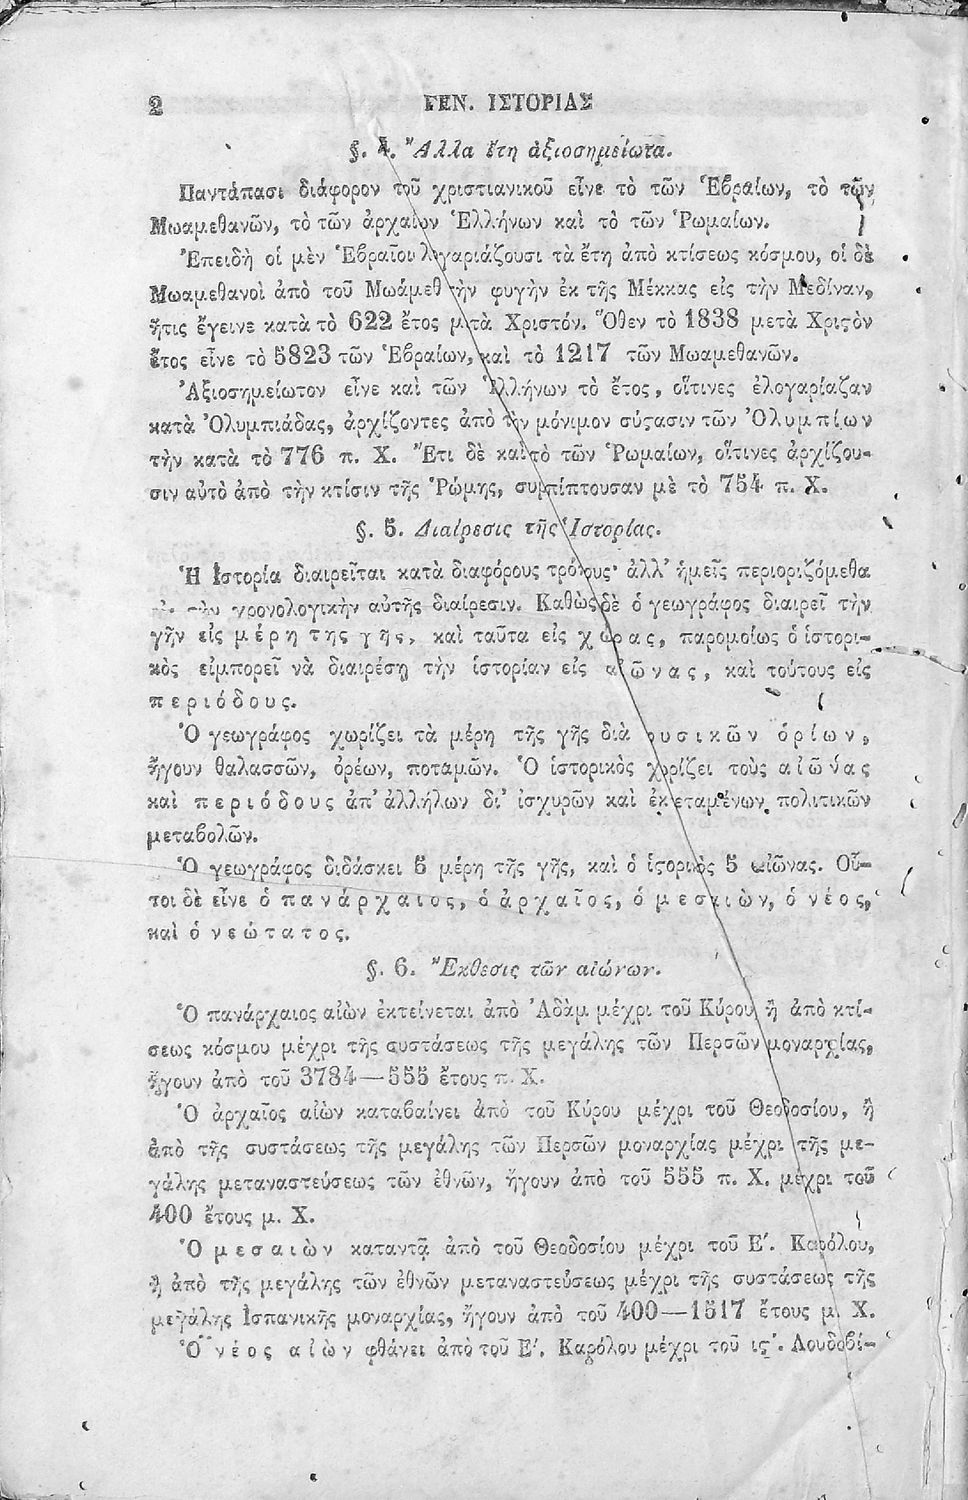 2
ΓΕΝ. ΙΣΤΟΡΙΑΣ
§. 4. Ἄλλα ἔτη ἀξιοσημείωτα.
Παντάπασι διάφορον τοῦ χριστιανικοῦ εἶνε τὸ τῶν Ἑβραίων, τὸ τῶν
Μωαμεθανῶν, τὸ τῶν ἀρχαίων Ἑλλήνων καὶ τὸ τῶν Ῥωμαίων.
Ἐπειδὴ οἱ μὲν Ἑβραῖοι λογαριάζουσι τὰ ἔτη ἀπὸ κτίσεως κόσμου, οἱ δὲ
Μωαμεθανοὶ ἀπὸ τοῦ Μωάμεθ τὴν φυγὴν ἐκ τῆς Μέκκας εἰς τὴν Μεδίναν,
ἥτις ἔγεινε κατὰ τὸ 622 ἔτος μετὰ Χριστόν. Ὅθεν τὸ 1838 μετὰ Χριϛὸν
ἔτος εἶνε τὸ 5823 τῶν Ἑβραίων, καὶ τὸ 1217 τῶν Μωαμεθανῶν.
Ἀξιοσημείωτον εἶνε καὶ τῶν Ἑλλήνων τὸ ἔτος, οἵτινες ἐλογαρίαζαν
κατὰ Ὀλυμπιάδας, ἀρχίζοντες ἀπὸ τὴν μόνιμον σύϛασιν τῶν Ὀλυμπίων
τὴν κατὰ τὸ 776 π. Χ. Ἔτι δὲ καὶ τὸ τῶν Ῥωμαίων, οἵτινες ἀρχίζου-
σιν αὐτὸ ἀπὸ τὴν κτίσιν τῆς Ῥώμης, συμπίπτουσαν μὲ τὸ 754 π. Χ.
§. 5. Διαίρεσις τῆς Ἱστορίας.
Ἡ Ἱστορία διαιρεῖται κατὰ διαφόρους τρόπους· ἀλλ' ἡμεῖς περιοριζόμεθα
χρονολογικὴν αὐτῆς διαίρεσιν. Καθὼς δὲ ὁ γεωγράφος διαιρεῖ τὴν
γῆν εἰς μέρη της γῆς, καὶ ταῦτα εἰς χώρας, παρομοίως ὁ ἱστορι-
κὸς εἰμπορεῖ νὰ διαιρέσῃ τὴν ἱστορίαν εἰς αἰῶνας, καὶ τούτους εἰς
περιόδους.
Ὁ γεωγράφος χωρίζει τὰ μέρη τῆς γῆς διὰ φυσικῶν ὁρίων,
ἤγουν θαλασσῶν, ὀρέων, ποταμῶν. Ὁ ἱστορικὸς χωρίζει τοὺς αἰῶνας
καὶ περιόδους ἀπ' ἀλλήλων δι' ἰσχυρῶν καὶ ἐκτεταμένων πολιτικῶν
μεταβολῶν.
Ὁ γεωγράφος διδάσκει 5 μέρη τῆς γῆς, καὶ ὁ ἱϛορικὸς 5 αἰῶνας. Οὗ-
τοι δὲ εἶνε ὁ πανάρχαιος, ὁ ἀρχαῖος, ὁ μεσαιὼν, ὁ νέος,
καὶ ὁ νεώτατος.
§. 6. Ἔκθεσις τῶν αἰώνων.
Ὁ πανάρχαιος αἰὼν ἐκτείνεται ἀπὸ Ἀδὰμ μέχρι τοῦ Κύρου ἢ ἀπὸ κτί-
σεως κόσμου μέχρι τῆς συστάσεως τῆς μεγάλης τῶν Περσῶν μοναρχίας,
ἤγουν ἀπὸ τοῦ 3784—555 ἔτους π. Χ.
Ὁ ἀρχαῖος αἰὼν καταβαίνει ἀπὸ τοῦ Κύρου μέχρι τοῦ Θεοδοσίου, ἢ
ἀπὸ τῆς συστάσεως τῆς μεγάλης τῶν Περσῶν μοναρχίας μέχρι τῆς με-
γάλης μεταναστεύσεως τῶν ἐθνῶν, ἤγουν ἀπὸ τοῦ 555 π. Χ. μέχρι τοῦ
400 ἔτους μ. Χ.
Ὁ μεσαιὼν καταντᾷ ἀπὸ τοῦ Θεοδοσίου μέχρι τοῦ Ε'. Καρόλου,
ἢ ἀπὸ τῆς μεγάλης τῶν ἐθνῶν μεταναστεύσεως μέχρι τῆς συστάσεως τῆς
μεγάλης Ἱσπανικῆς μοναρχίας, ἤγουν ἀπὸ τοῦ 400—1517 ἔτους μ. Χ.
Ὁ νέος αἰὼν φθάνει ἀπὸ τοῦ Ε'. Καρόλου μέχρι τοῦ ιϛ'. Λουδοβί-